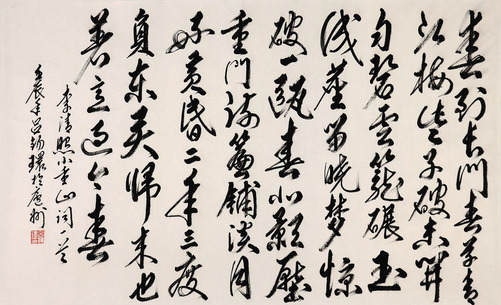 春到长门春草青
江梅些子破未開
匀碧雲籠碾玉
成塵留晓梦惊
破一瓯春花影壓
重门疏簾鋪淡月
好黄昏二年三度
負东君归来也
著意过今春
李清照小重山词一首
壬辰 吕 環於廬州